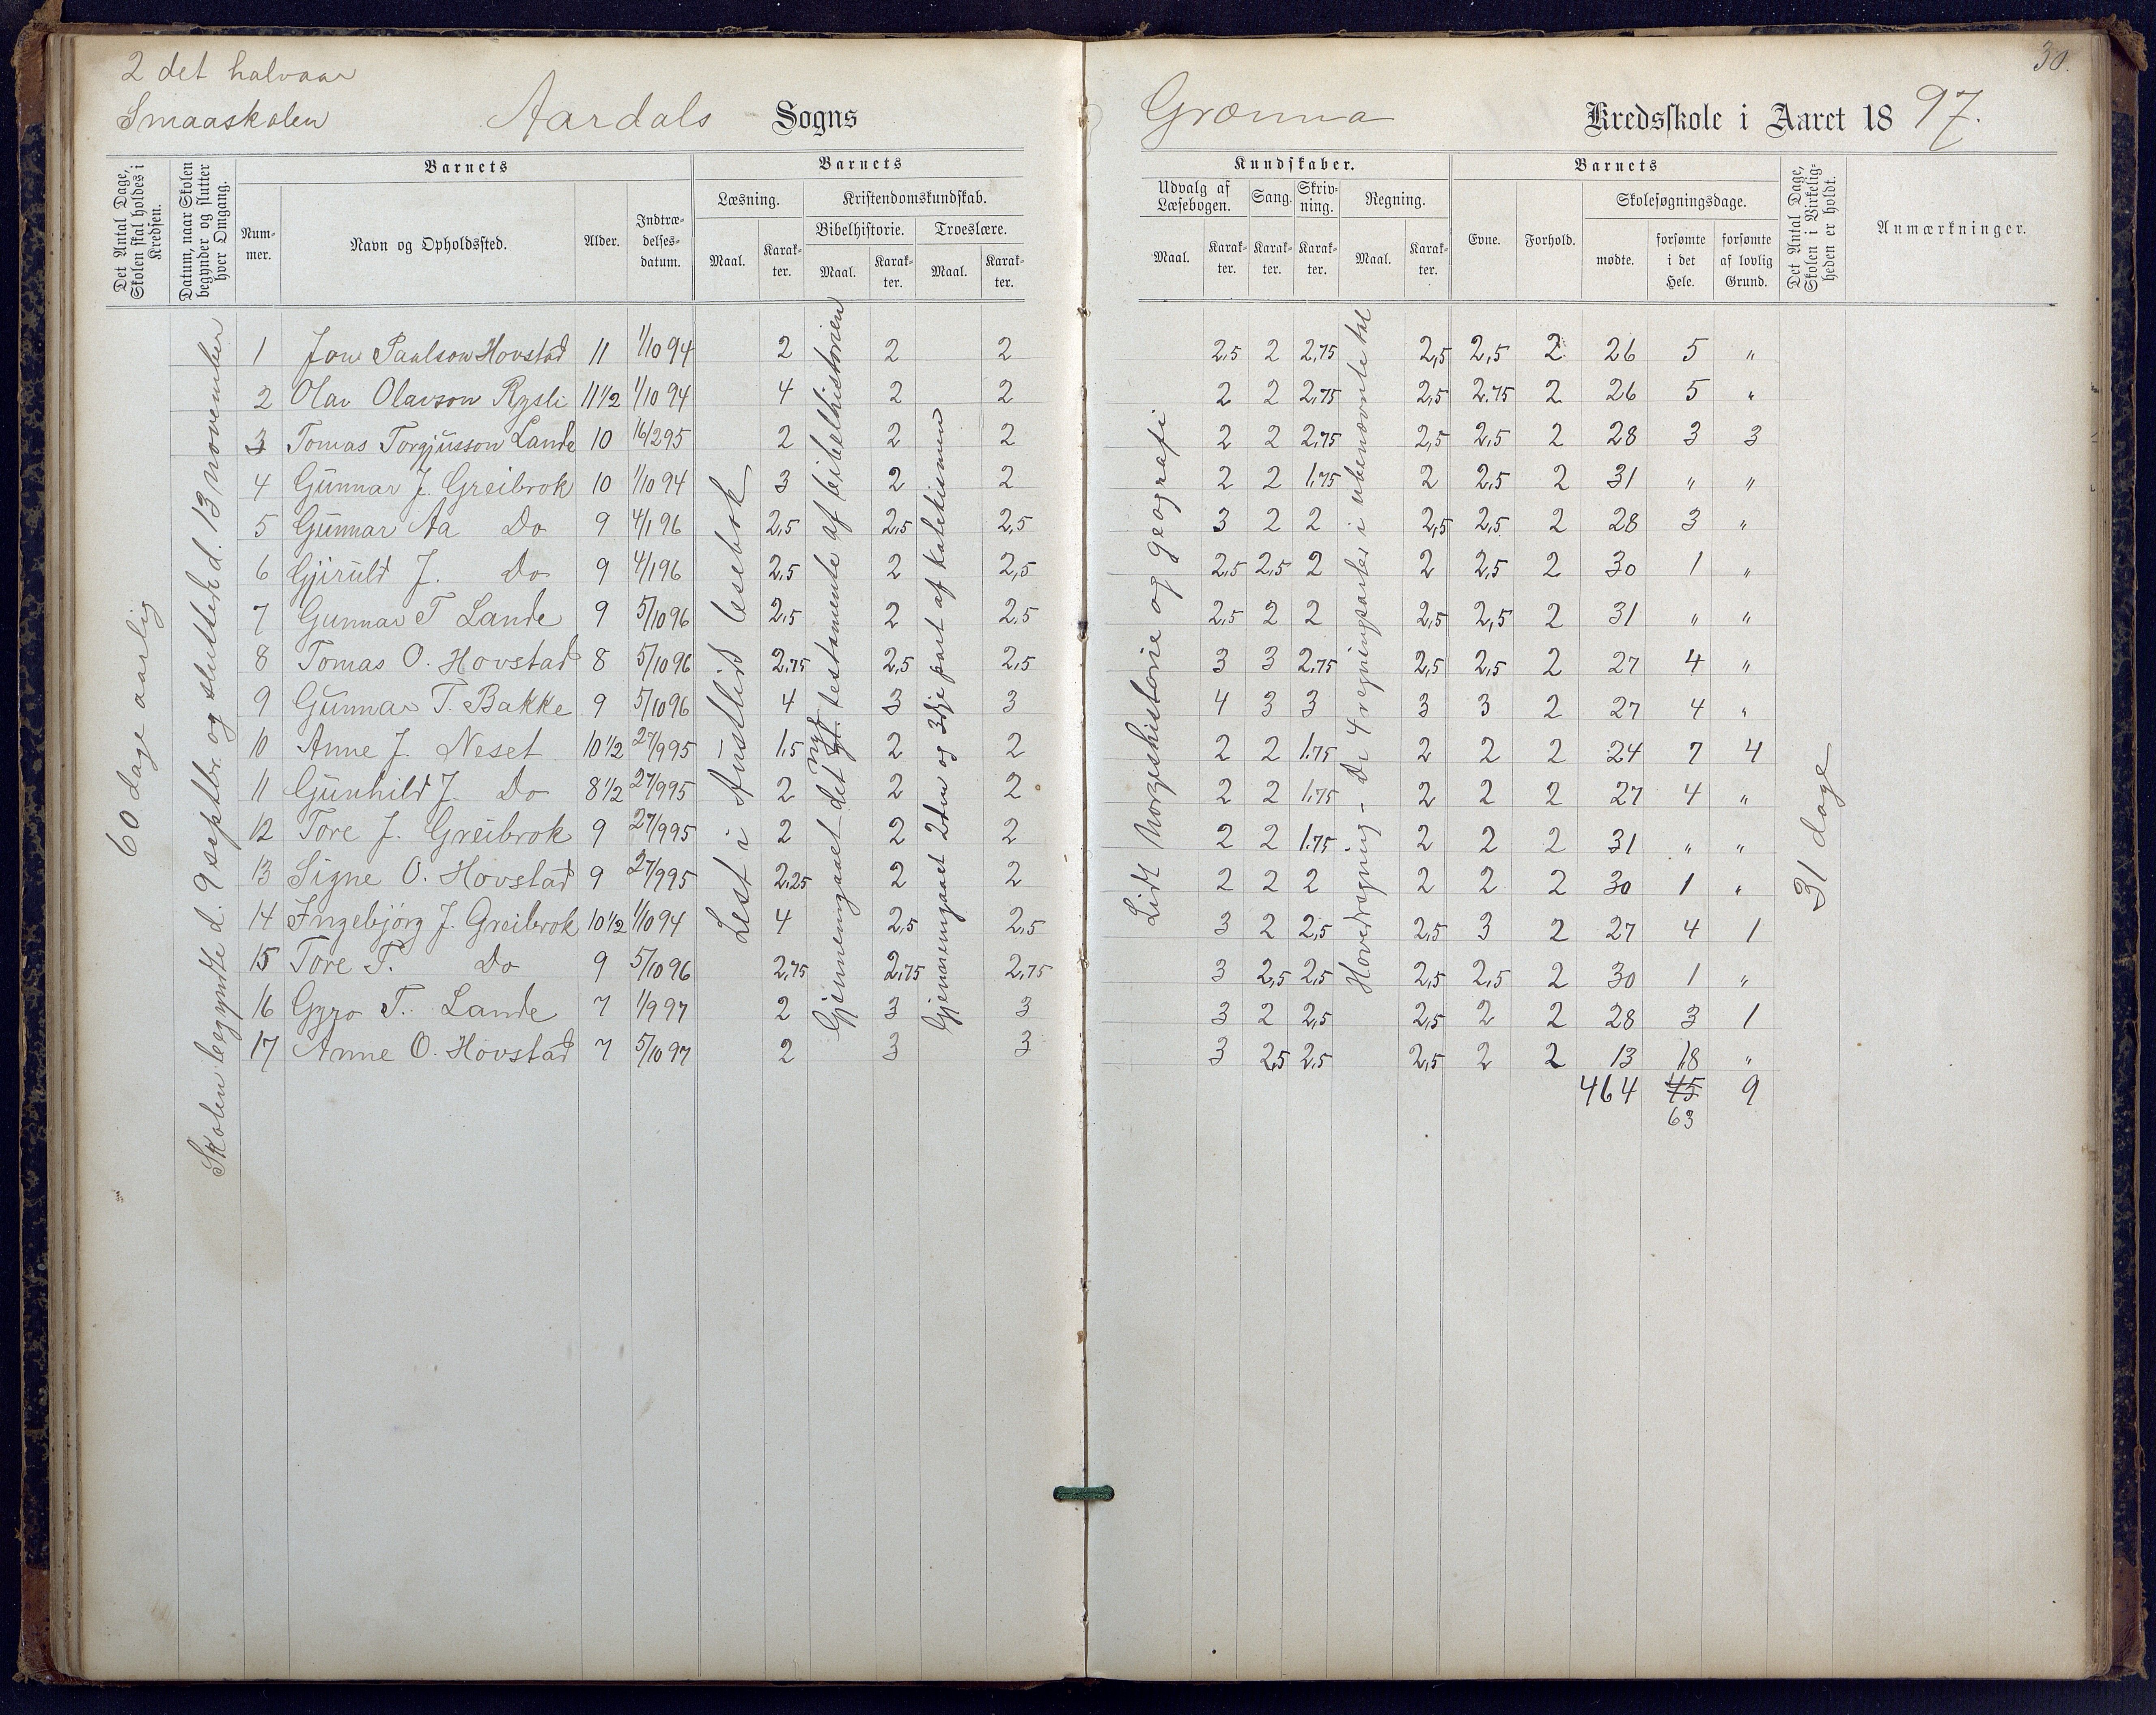 2 det halvaar
Smaaskolen
Aardals Sogns
Det Antal Dage, Skolen skal holdes i Kredsen.
Datum, naar Skolen begynder og slutter hver Omgang.
Barnets
Nummer.
Navn og Opholdssted.
Alder.
Indtrædelsesdatum.
Barnets
Læsning.
Maal.
Karakter.
Kristendomskundskab.
Bibelhistorie.
Maal.
Karakter.
Troeslære.
Maal.
Karakter.
60 dage aarlig
Skolen begyndte d. 9 septbr. og sluttede d. 13 november
Lest i Austlid lesebok
Gjennemgaaet det gl. nye testamente af bibelhistorien
Gjennemgaaet 2den og 3dje part af katekismen
1 Jon Paulson Hovstad 11 1/10 94 2 2 2
2 Olav Olavson Rysli 11 1/2 1/10 94 4 2 2
3 Tomas Torgjusson Lande 10 16/2 95 2 2 2
4 Gunnar J. Greibrok 10 1/10 94 3 2 2
5 Gunnar Aa Do 9 4/1 96 2,5 2,5 2,5
6 Gjiruld J. Do 9 4/1 96 2,5 2 2,5
7 Gunnar T Lande 9 5/10 96 2,5 2 2,5
8 Tomas O. Hovstad 8 5/10 96 2,75 2,5 2,5
9 Gunnar T. Bakke 9 5/10 96 4 3 3
10 Anne J. Neset 10 1/2 27/9 95 1,5 2 2
11 Gunhild J. Do 8 1/2 27/9 95 2 2 2
12 Tore J. Greibrok 9 27/9 95 2 2 2
13 Signe O. Hovstad 9 27/9 95 2,25 2 2
14 Ingebjörg J. Greibrok 10 1/2 1/10 94 4 2,5 2,5
15 Tore T. Do 9 5/10 96 2,75 2,75 2,75
16 Gyro T. Lande 7 1/9 97 2 3 3
17 Anne O. Hovstad 7 5/10 97 2 3 3
30.
Grænna Kredsskole i Aaret 1897.
Kundskaber.
Udvalg af Læsebogen.
Maal.
Karakter.
Sang.
Karakter.
Skrivning.
Karakter.
Regning.
Maal.
Karakter.
Barnets
Evne.
Forhold.
Skolesøgningsdage.
mødte.
forsømte i det Hele.
forsømte af lovlig Grund.
Det Antal Dage, Skolen i Virkeligheden er holdt.
Anmærkninger.
Lidt Norgeshistorie og geografi
Hovedregning - De 4 regningsarter i ubenævnte tal
31 dage
2,5 2 2,75 2,5 2,5 2 26 5 "
2 2 2,75 2,5 2,75 2 26 5 "
2 2 2,75 2,5 2,5 2 28 3 3
2 2 1,75 2 2,5 2 31 " "
3 2 2 2,5 2,5 2 28 3 "
2,5 2,5 2 2 2,5 2 30 1 "
2,5 2 2 2,5 2,5 2 31 " "
3 3 2,75 2,5 2,5 2 27 4 "
4 3 3 3 3 2 27 4 "
2 2 1,75 2 2 2 24 7 4
2 2 1,75 2 2 2 27 4 "
2 2 1,75 2 2 2 31 " "
2 2 2 2 2 2 30 1 "
3 2 2,5 2,5 3 2 27 4 1
3 2,5 2,5 2,5 2,5 2 30 1 "
3 2 2,5 2,5 2 2 28 3 1
3 2,5 2,5 2,5 2 2 13 18 "
464 45 9
63